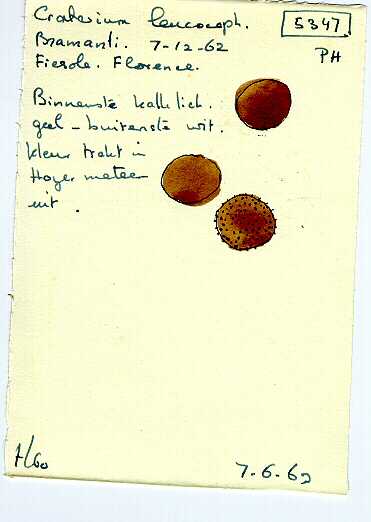 Craterium leucoceph.
5347.
Bramanti. 7-12-62
PH
Fiesole. Florence.
Binnenste kalklich.
geel - buitenste wit.
kleur trekt in
Hoyer meteen
uit.
7.6.62